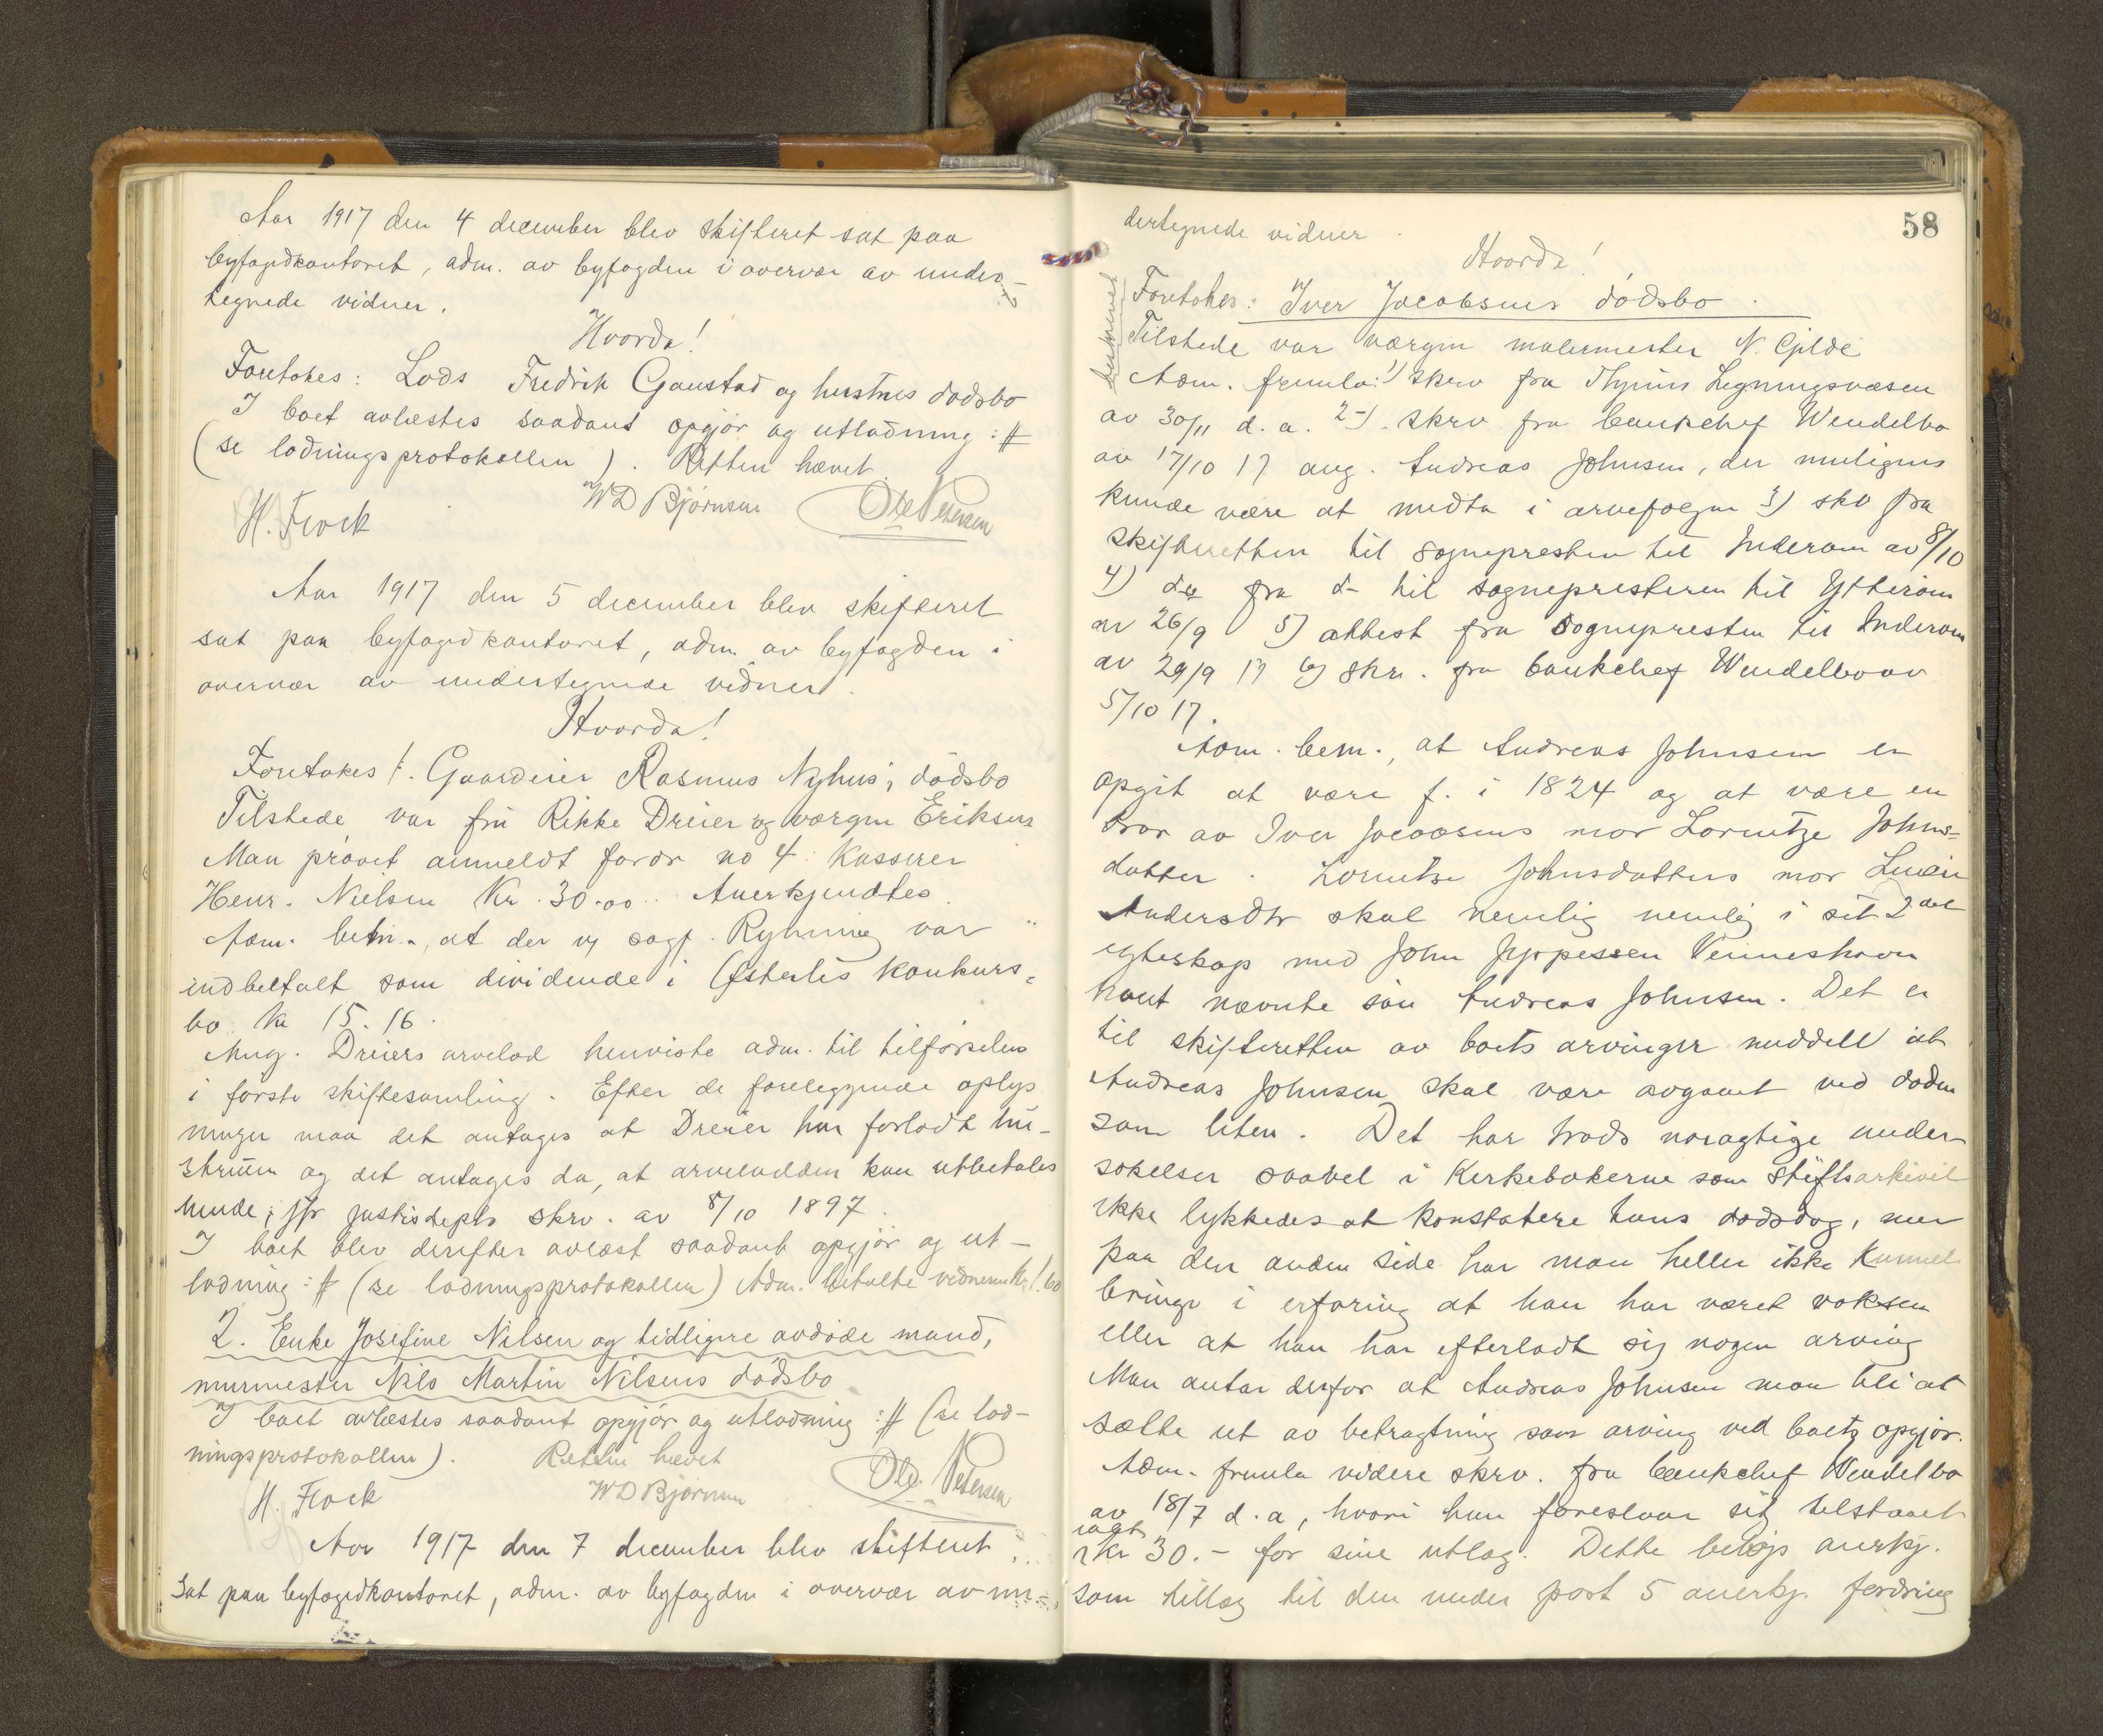 Aar 1917 den 4 december blev skifteret sat paa
byfogdkontoret, adm. av byfogden i overvær av under-
tegnede vidner.
Hvorda!
Foretokes: Lods Fredrik Gaustad og hustrus dødsbo
I boet avlæstes saadant opgjør og utlodning :#
(se lodningsprotokollen). Retten hævet.
H. Flock WD Bjørnsen Ole Petersen
Aar 1917 den 5 december blev skifteret
sat paa byfogdkontoret, adm. av byfogden i
overvær av undertegnede vidner.
Hvorda!
Foretokes 1. Gaardeier Rasmus Nyhus's dödsbo
Tilstede var fru Rikke Dreier og værgen Eriksen
Man prøvet anmeldt fordr no 4: Kasserer
Henr. Nielsen Kr. 30.00. Anerkjendtes.
Adm. bem., at der vy sagf. Ryhning var
indbetalt som dividende i Østerlis konkurs-
bo. Kr 15.16.
Ang. Dreiers arvelod henviste adm. til tilførselen
i første skiftesamling. Efter de foreliggende oplys
ninger maa det antages at Dreier har forlodt hu-
struen og det antages da, at arvelodden kan utbetales
hende; jfr justisdepts skrv. av 8/10 1897.
I boet blev derefter avlæst saadant opgjør og ut-
lodning :# (se lodningsprotokollen) Adm. betalte vidnerne kr 1.60
2. Enke Josefine Nilsen og tidligere avdøde mand,
murmester Nils Martin Nilsens dödsbo
I boet avlæstes saadant opgjør og utlodning :# (se lod-
ningsprotokollen). Retten hævet
H. Flock WD Bjørnsen Ole Petersen
Aar 1917 den 7 december blev skifteret
sat paa byfogdkontoret, adm. av byfogden i overvær av un-
58
dertegnede vidner.
Hvorda!
Foretokes: Iver Jacobsens dödsbo.
Tilstede var værgen malermester N. Gjelde
Adm. fremla: 1) skrv fra Thjems Ligningsvæsen
av 30/11 d.a. 2) skrv fra bankchef Wendelbo
av 17/10 17 ang. Andreas Johnsen, der muligens
kunde være at medta i arvefølgen 3) skv fra
skifteretten til sognepresten til Inderøen av 8/10
4) do fra do til sognepresteren til Ytterøen
av 26/9 5) attest fra sognepresten til Inderøen
av 29/9 17 6) skr. fra bankchef Wendelbo av
5/10 17.
Adm. bem., at Andreas Johnsen er
opgit at være f. i 1824 og at være en
bror av Iver Jacobsens mor Lorentze Johns-
datter. Lorentze Johnsdatters mor
Andersdtr skal nemlig nemlig i sit 2det
egteskap med John Jeppessen Venneshavn
havt nævnte søn Andreas Johnsen. Det er
til skifteretten av boets arvinger meddelt at
Andreas Johnsen skal være avgaaet ved døden
som liten. Det har trods nøiagtige under-
søkelser saavel i Kirkebøkerne som Stiftsarkivit
ikke lykkedes at konstatere hans dødsdag, men
paa den anden side har man heller ikke kunnet
bringe i erfaring at han har været voksen
eller at han har efterladt sig nogen arving
Man antar derfor at Andreas Johnsen maa bli at
sætte ut av betragtning som arving ved boets opgjør.
Adm. fremla videre skrv. fra bankchef Wendelbo
av 18/7 d.a, hvori han foreslaar sig tilstaaet
ialt
kr 30.- for sine utlæg. Dette beløp anerkj.
som tillæg til den under post 5 anerkj. fordring